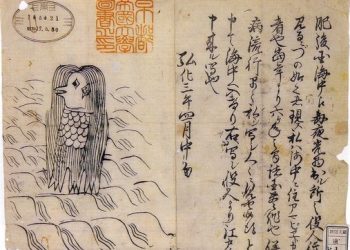 肥後国海中江毎夜光物出ル所之役人行
見るニづの如之者現ス私ハ海中ニ住アマビヱト申
者也當年より六ヶ年之間諸国豊作也併
病流行早々私ヲ写シ人々ニ見せ候得と
申て海中へ入けり右ハ写シ役人より江戸江
申来ル写也
弘化三年四月中旬